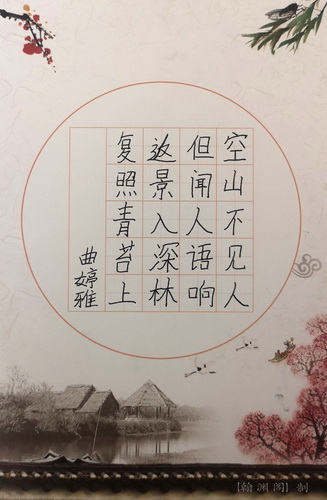 空山不见人
但闻人语响
返景入深林
复照青苔上
曲婷雅
【翰渊阁】制